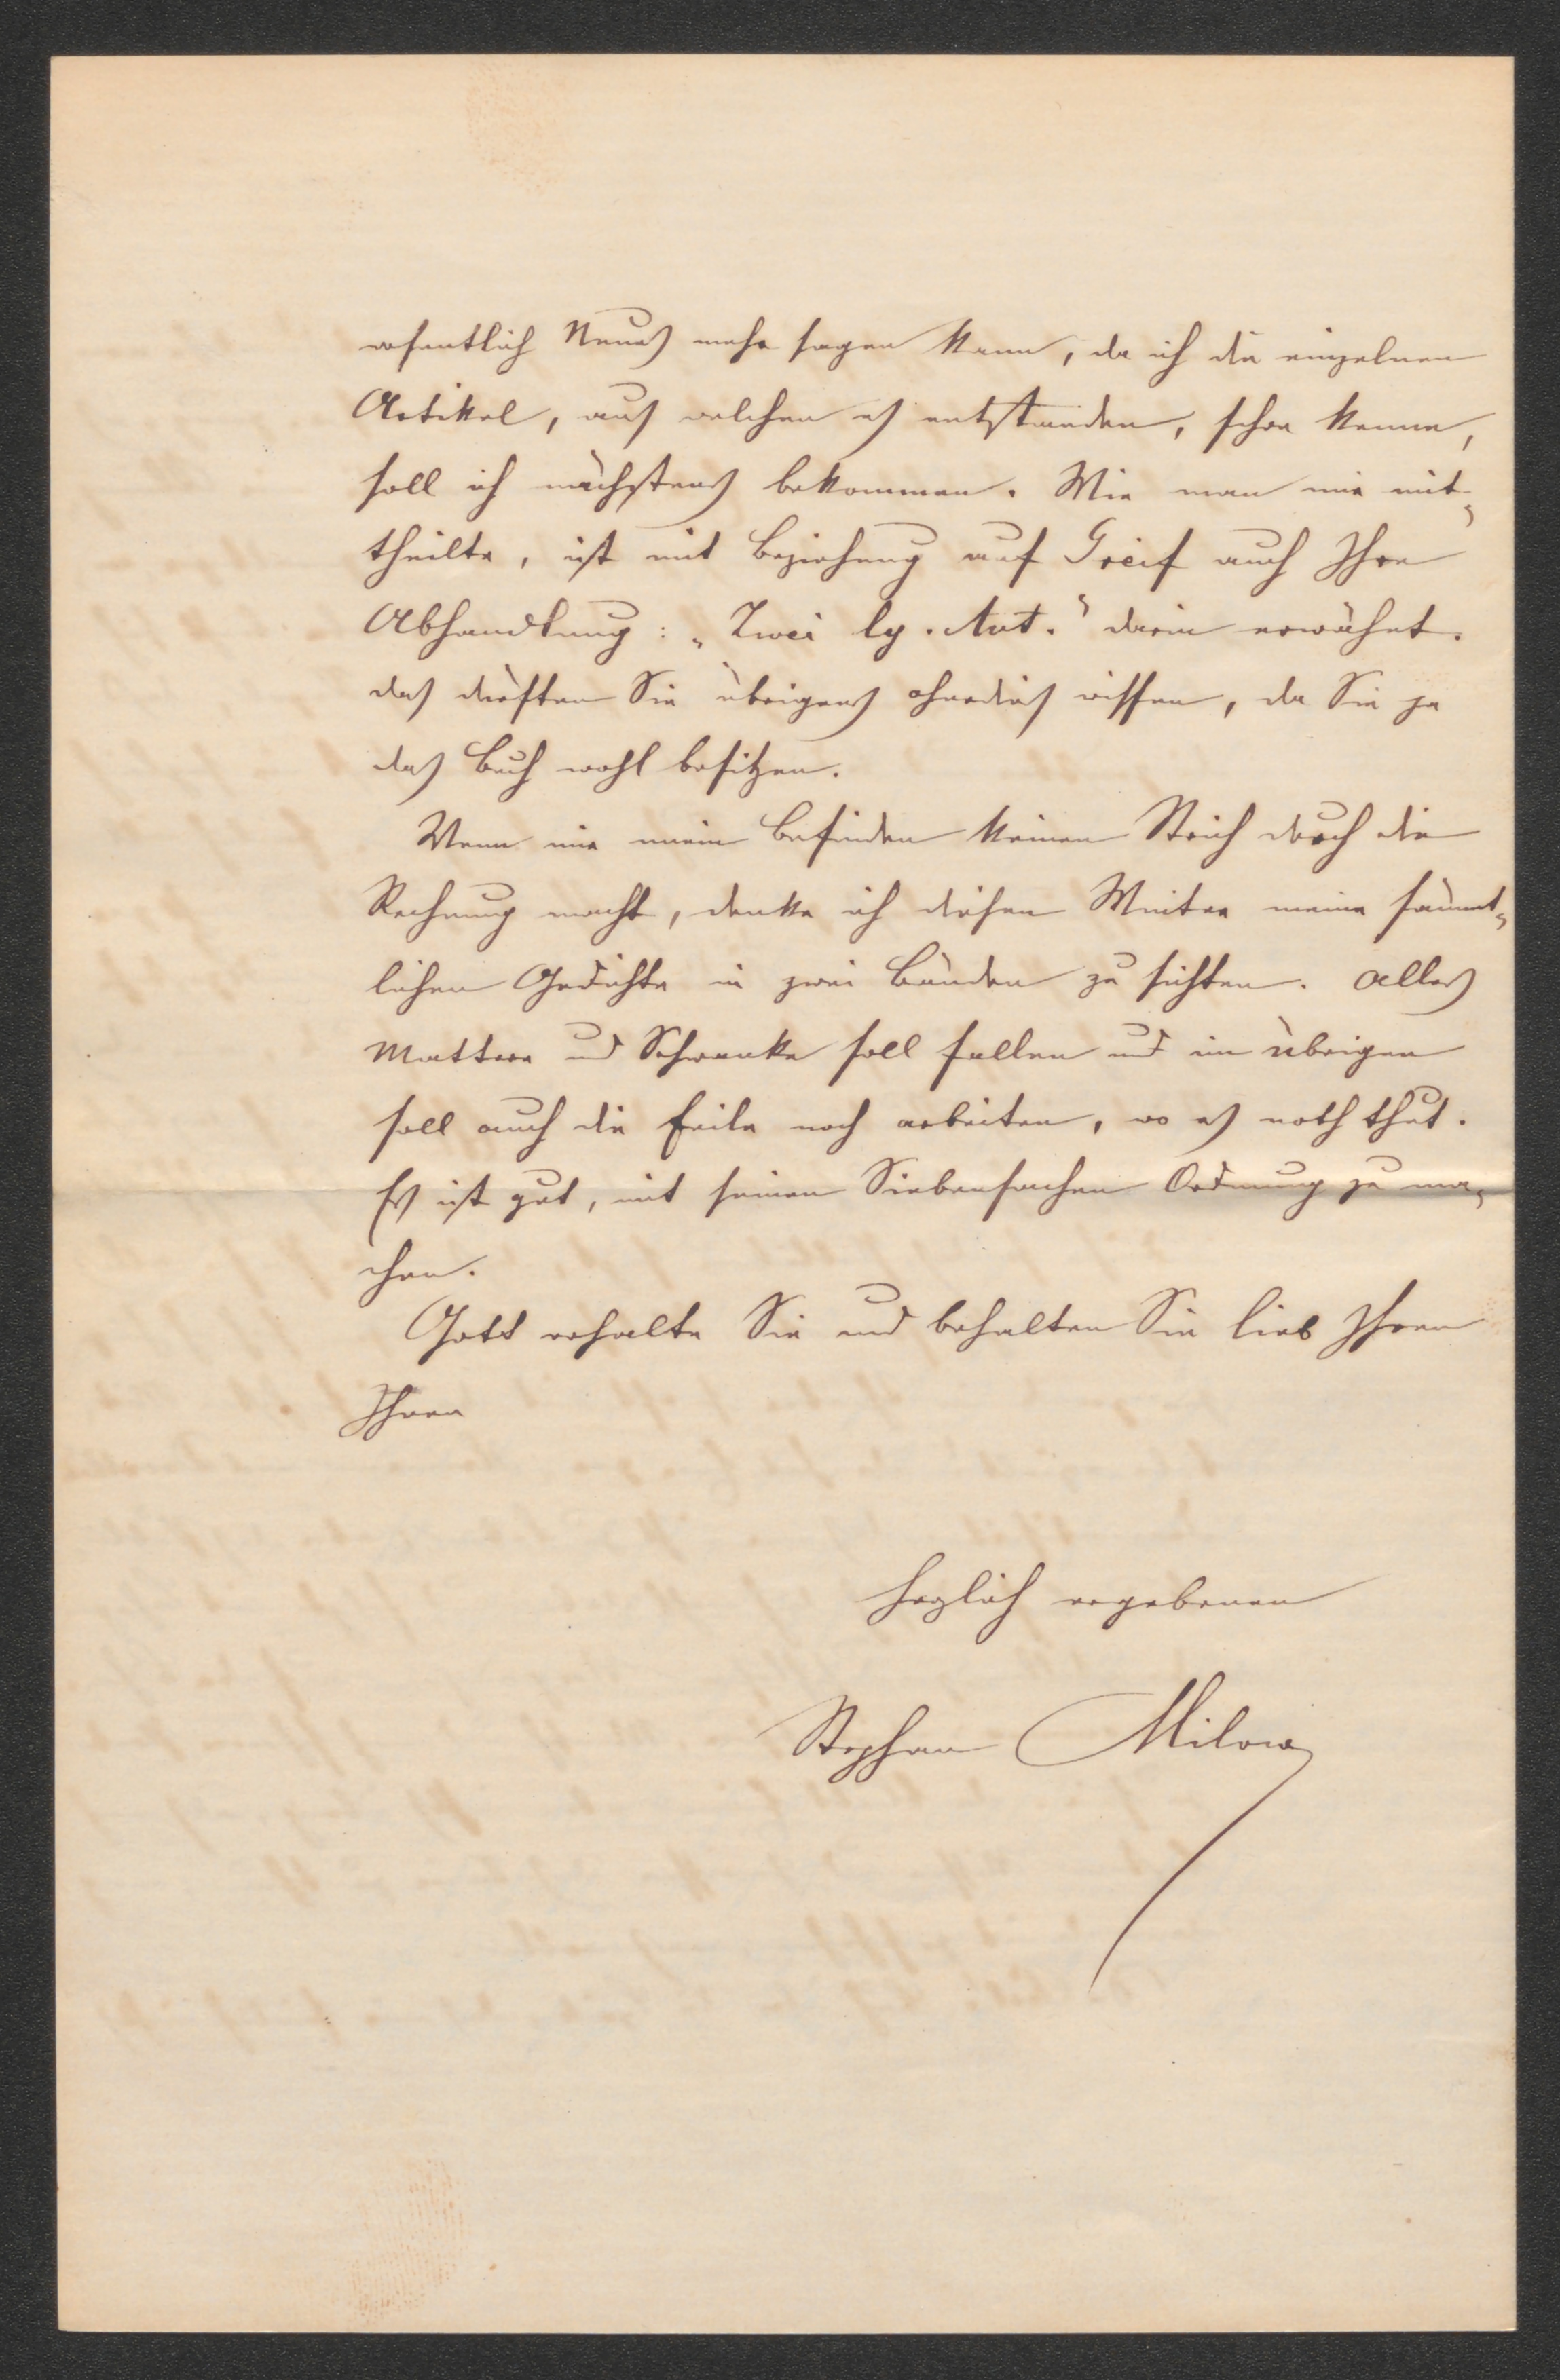 wesentlich Neues mehr sagen kann, da ich die einzelnen
Artikel, aus welchen es entstanden, schon kenne,
soll ich nächstens bekommen. Wie man mir mit-
theilte, ist mit Beziehung auf Greif auch Ihre
Abhandlung: „Zwei ly. Ant.“ darin erwähnt.
das dürften Sie übrigens ohnedies wissen, da Sie ja
das Buch wohl besitzen.
Wenn mir mein Befinden keinen Strich durch die
Rechnung macht, denke ich diesen Winter meine sämmt-
lichen Gedichte in zwei Bänden zu sichten. Alles
Mattere und Schwanke soll fallen und im übrigen
soll auch die Feile noch arbeiten, wo es noth thut.
Es ist gut, mit seinen Siebensachen Ordnung zu ma-
chen.
Gott erhalte Sie und behalten Sie lieb Ihren
Ihren
herzlich ergebenen
Stephan Milow